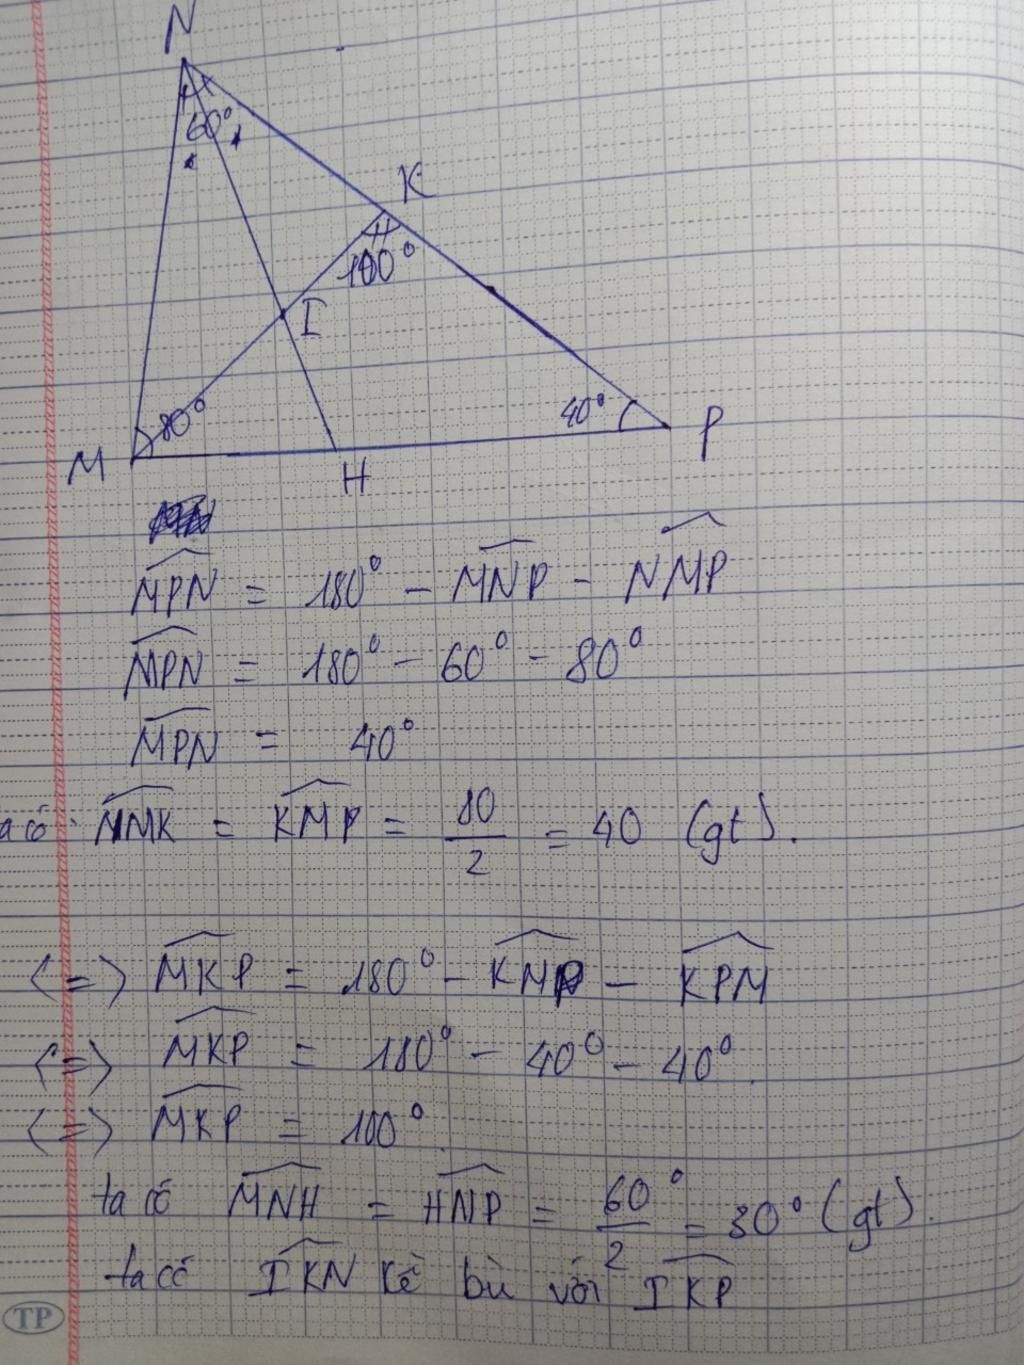 N
60°
K
100°
I
80°
40°
M
H
P
MPN = 180° - MNP - NMP
MPN = 180° - 60° - 80°
MPN = 40°
a có: NMK = KMP = 80/2 = 40 (gt).
<=> MKP = 180° - KMP - KPM
<=> MKP = 180° - 40° - 40°.
<=> MKP = 100°.
ta có MNH = HNP = 60°/2 = 30° (gt).
ta có IKN kề bù với IKP
TP